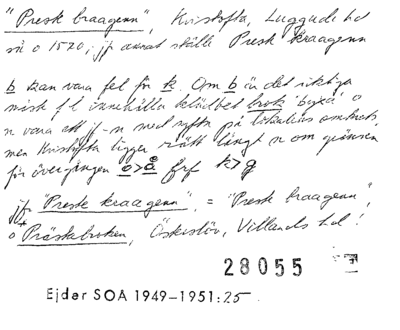 "Presk braagenn", Kristofta, Luggude hd
nu o 1520; jf annat ställe Presk kraagenn
b kan vara fel för k. Om b är det riktiga
misk f l innehålla brok 'byxa' o
n vara ett j-n med syfta på lokalens
men Kristofta ligger rätt långt n om gränsen
för övergången o>å frf k>g
jfr "Presk kraagenn", = "Presk braagenn",
o Präskabroken, Öskislöv, Villands hd!
28055
Ejder SOA 1949-1951:25